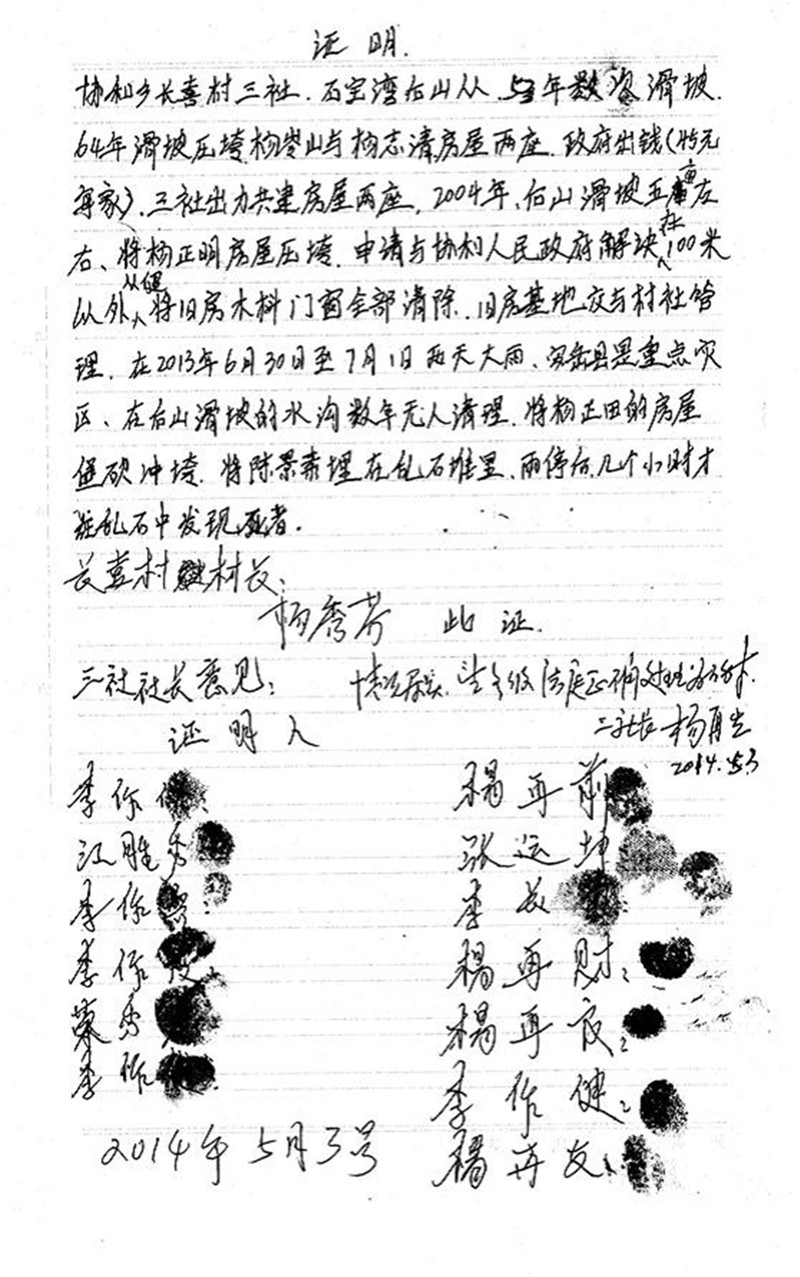 证明.
协和乡长喜村三社.石宝湾后山从 年数次滑坡.
64年滑坡压垮杨岑山与杨志清房屋两座.政府出钱(75元
每家).三社出力共建房屋两座.2004年、后山滑坡五亩左
右、将杨正明房屋压垮.申请与协和人民政府解决.在100米
以外从建将旧房木料门窗全部清除.旧房基地交与村社管
理.在2013年6月30日至7月1日两天大雨、安岳县是重点灾
区、在后山滑坡的水沟数年无人清理.将杨正田的房屋
保砍冲垮.将陈景素埋在乱石堆里、雨停后几个小时才
在乱石中发现死者.
长喜村村长:
杨秀芳 此证.
三社社长意见: 情况属实.
证明人 三社长 杨再生
2014.5.3
李作 杨再前
江胜秀 张运坤
李作 李长
李作 杨再财:
秀 杨再
李作 李作健:
2014年5月3号 杨再友: